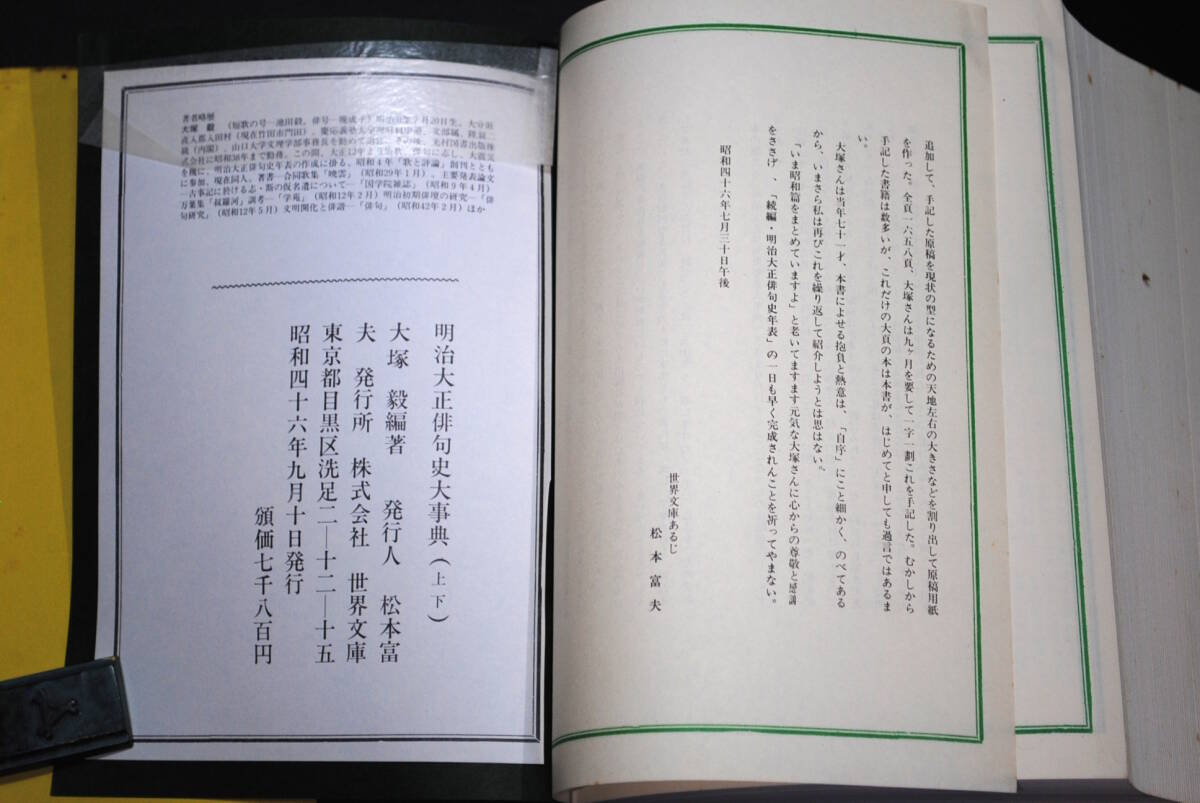 追加して、手記した原稿を現状の型になるための天地左右の大きさなどを割り出して原稿用紙
を作った。全頁一六五八頁、大塚さんは九ヶ月を要して一字一劃これを手記した。むかしから
手記した書籍は数多いが、これだけの大頁の本は本書が、はじめてと申しても過言ではあるま
い。
大塚さんは当年七十一才、本書によせる抱負と熱意は、「自序」にこと細かく、のべてある
から、いまさら私は再びこれを繰り返して紹介しようとは思はない。
「いま昭和篇をまとめていますよ」と老いてますます元気な大塚さんに心からの尊敬と感謝
をささげ、、「続編・明治大正俳句史年表」の一日も早く完成されんことを祈ってやまない。
昭和四十六年七月三十日午後
世界文庫あるじ
松本富夫
著者略歴
大塚 毅 (短歌の号―池田毅、俳号―幾成子)明治 月20日生。大分県
直入郡入田村(現在竹田市門田)。慶応義塾大学 文部属、
属(内閣)、山口大学文理学部事務長を勤めて退官、その後、光村図書出版株
式会社に昭和38年まで勤務。この間、大正12年 短歌、俳句に志し、大震災
を機に、明治大正俳句史年表の作成に掛る。昭和4年「歌と評論」創刊ととも
に参加、現在同人。著書―合同歌集「暁雲」(昭和29年1月)、主要発表論文
―古事記に於ける志・斯の仮名遣について―「国学院雑誌」(昭和9年4月)
万葉集「叔羅河」訓考―「学苑」(昭和12年2月)明治初期俳壇の研究―「俳
句研究」(昭和12年5月)文明開化と俳諧―「俳句」(昭和42年2月)ほか
明治大正俳句史大事典(上下)
大塚 毅編著 発行人 松本富
夫 発行所 株式会社 世界文庫
東京都目黒区洗足二―十二―十五
昭和四十六年九月十日発行
頒価七千八百円